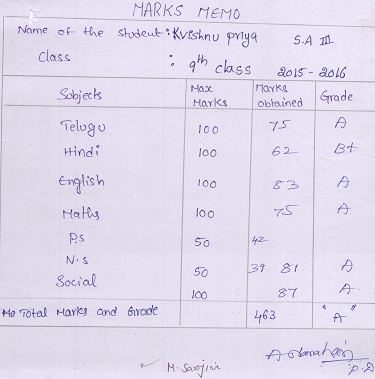 MARKS MEMO
Name of the student: Kvishnu priya S.A III
Class : 9th class 2015-2016
Subjects Max Marks Marks obtained Grade
Telugu 100 75 A
Hindi 100 62 B+
English 100 83 A
Maths 100 75 A
P.S 50 42
N.S 50 39 81 A
Social 100 87 A
Total Marks and Grade 463 "A"
M. Sarojini